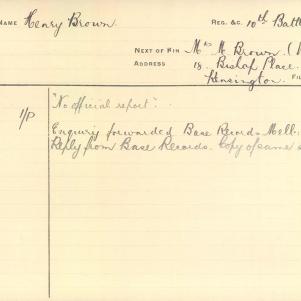 NAME Henry Brown REG. &C. 10th Batt
NEXT OF KIN Mrs M. Brown. (
ADDRESS 18. Bishop Place.
Kensington. FI
"No official report".
1/P
Enquiry forwarded Base Records Mell:
Reply from Base Records. Copy of same s